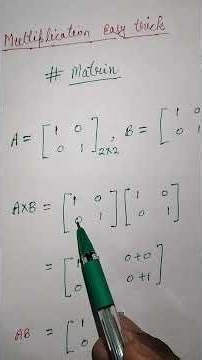 Multiplication easy trick
# Matrix
A = [1 0 0 1]2×2, B = [1 0 0 1
A×B = [1 0 0 1] [1 0 0 1]
= [ 0+0 0 0+1]
AB = [1 0